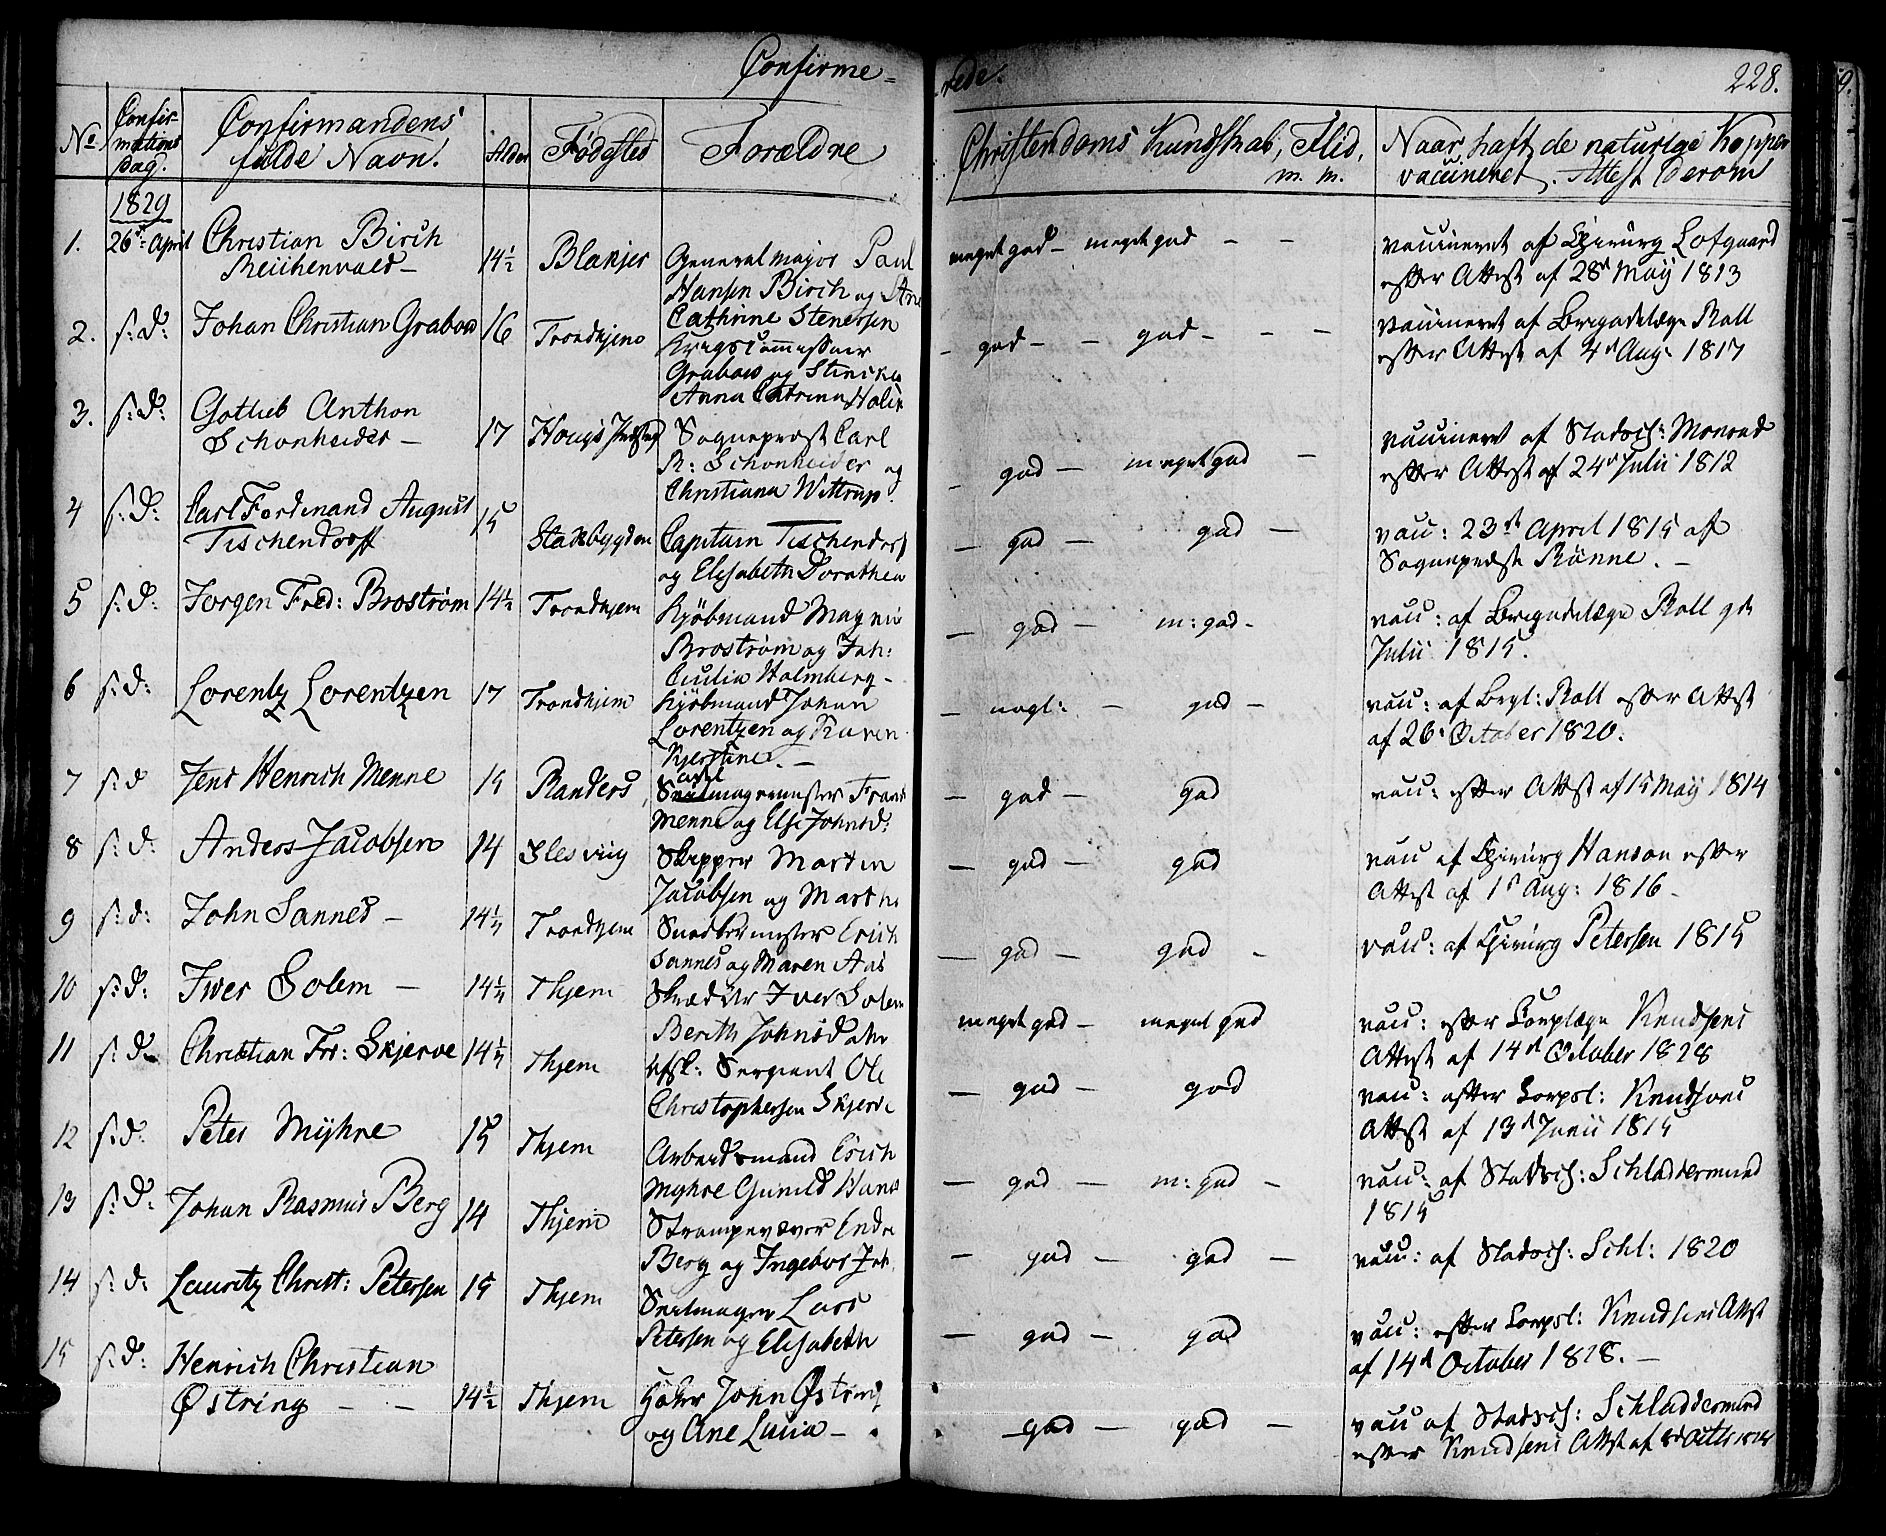 Confirme-
rede.
228.
No
Confir-
mations
Dag.
Confirmandens
fulde Navn.
Alder
Fødested
Forældre
Christendoms Kundskab, Flid,
m. m.
Naar haft de naturlige Kopper
vaccineret. Attest derom
1829
1. 26de April Christian Birch
Reichenwald - 14½ Blakjer Generalmajor Paul
Hansen Birch og Ane
Cathrine Stenersen
meget god - meget god - -
vaccineret af Chirurg Lofgaard
efter Attest af 28d May 1813
2. s: d: Johan Christian Grabow 16 Trondhjem
Krigscommissair
Grabow og
Anna Catrina
- god - - god - - -
vaccineret af Brigadelæge Roll
efter Attest af 4d Aug: 1817
3. s: d: Gotlieb Anthon
Schonheider - 17 Sognepræst Carl
R: Schonheider og
Christiana Wittrup.
- god - meget god -
vaccineret af Stadsch: Monrad
efter Attest af 24d Julii 1812
4 s: d: Carl Ferdinand August
Tischendorff 15 Stadsbygden Capitain Tischendorf
og Elisabeth Dorothea
- god - god -
vacc: 23de April 1815 af
Sognepræst Rønne. -
5 s: d: Jorgen Fred: Brostrøm 14½ Trondhjem Kjøbmand Magnus
Brostrøm og Joh:
Cecilia Holmberg -
- god - m: god -
vacc: af Brigadelæge Roll 9de
Julii 1815.
6 s: d: Lorentz Lorentzen 17 Trondhjem Kjøbmand Johan
Lorentzen og Karen
Kjerstine. -
- god -
vacc: af Brgl: Roll efter Attest
af 26. October 1820.
7 s: d Jens Henrich Menne 15 Randers
Menne og Else Johnsd:
- god - god
vacc: efter Attest af 15 May 1814
8 s: d: Anders Jacobsen 14 Slesvig Skipper Morten
Jacobsen og Marthe
- god - god
vacc af Chirurg Hanson efter
Attest af 1d Aug: 1816 -
9 s: d: John Sannes - 14½ Trondhjem Snedkermester Erich
Sannes og Maren Aas
- god - god -
vacc: af Chirurg Petersen 1815
10 s: d: Iver Solem - 14½ Thjem Skrædder Iver Solem
Berith Johnsdatter
meget god - meget god
vacc: efter Corplæge Knudsens
Attest af 14d October 1828
11 s: d: Christian Fr: Skjerve 14½ Thjem Sergeant Ole
Christophersen Skjerve
- god - god
vacc: efter Corpsl: Knudsens
Attest af 13d Junii 1815
12 s: d: Peter Myhre 15 Thjem Arbeidsmand Erich
Myhre Gunild Hans
- god - m: god -
vacc: af Stadsch: Schladdermund
1815
13 s: d: Johan Rasmus Berg 14 Thjem Strømpevæver Endre
Berg og Ingebor Joh.
- god - god -
vacc: af Stadsch: Schl: 1820
14 s: d: Lauritz Christ: Petersen 15 Thjem Seilmager Lars
Petersen og Elisabeth
- god - god
vacc: efter Corpsl: Knudsens Attst
af 14d October 1828. -
15 s: d: Henrich Christian
Østring - - 14½ Thjem John Østring
og Ane Lucia -
- god - god -
vacc af Stadsch: Schladdermund
efter Knudsens Attst af